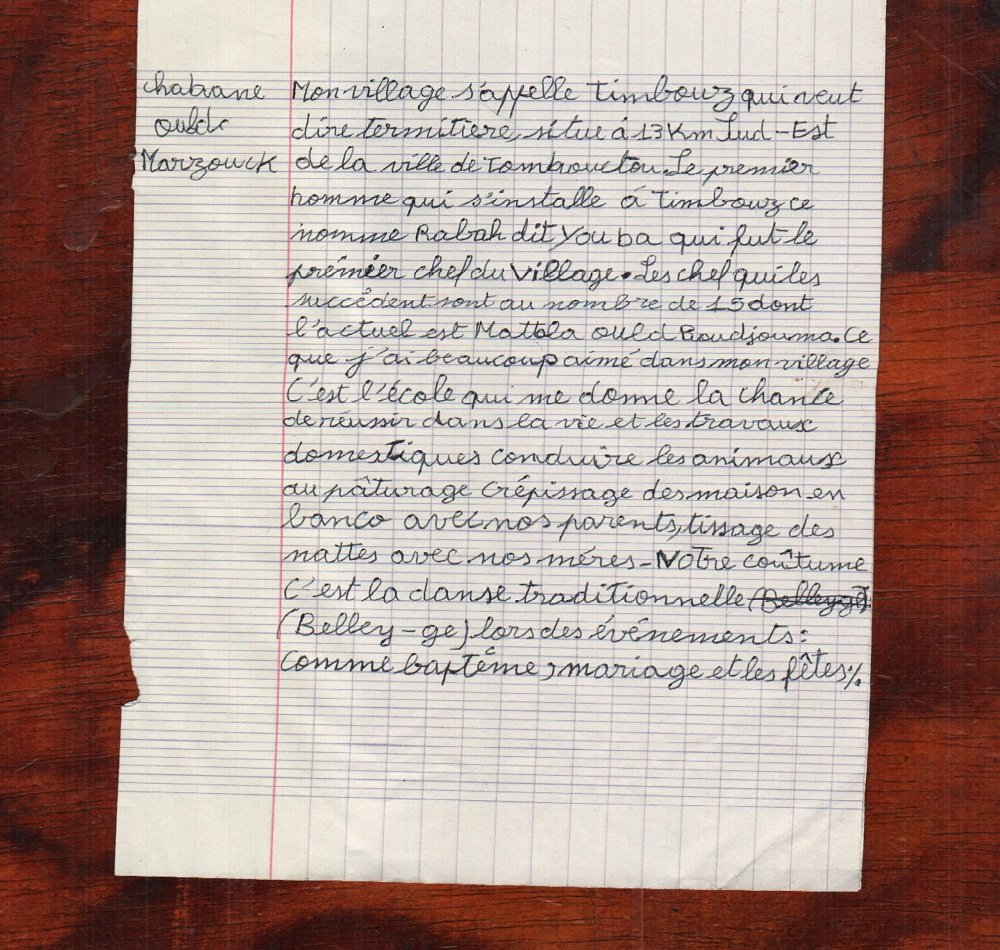 chabane
ould
Marzouck
Mon village s'appelle Timbouz qui veut
dire termitière, situe á 13 Km Sud-Est
de la ville de Tombouctou. Le premier
homme qui s'installe á Timbouz ce
nomme Rabah dit Youba qui fut le
prémier chef du Village. Les chef qui les
succédent sont au nombre de 15 dont
l'actuel est Mattala ould Boudjouma. Ce
que j'ai beaucoup aimé dans mon village
C'est l'école qui me donne la chance
de réussir dans la vie et les travaux
domestiques conduire les animaux
au pâturage crépissage des maison en
banco avec nos parents, tissage des
nattes avec nos méres - Notre coûtume
C'est la danse traditionnelle
(Belley-ge) lors des événements:
comme baptême, mariage et les fêtes./.